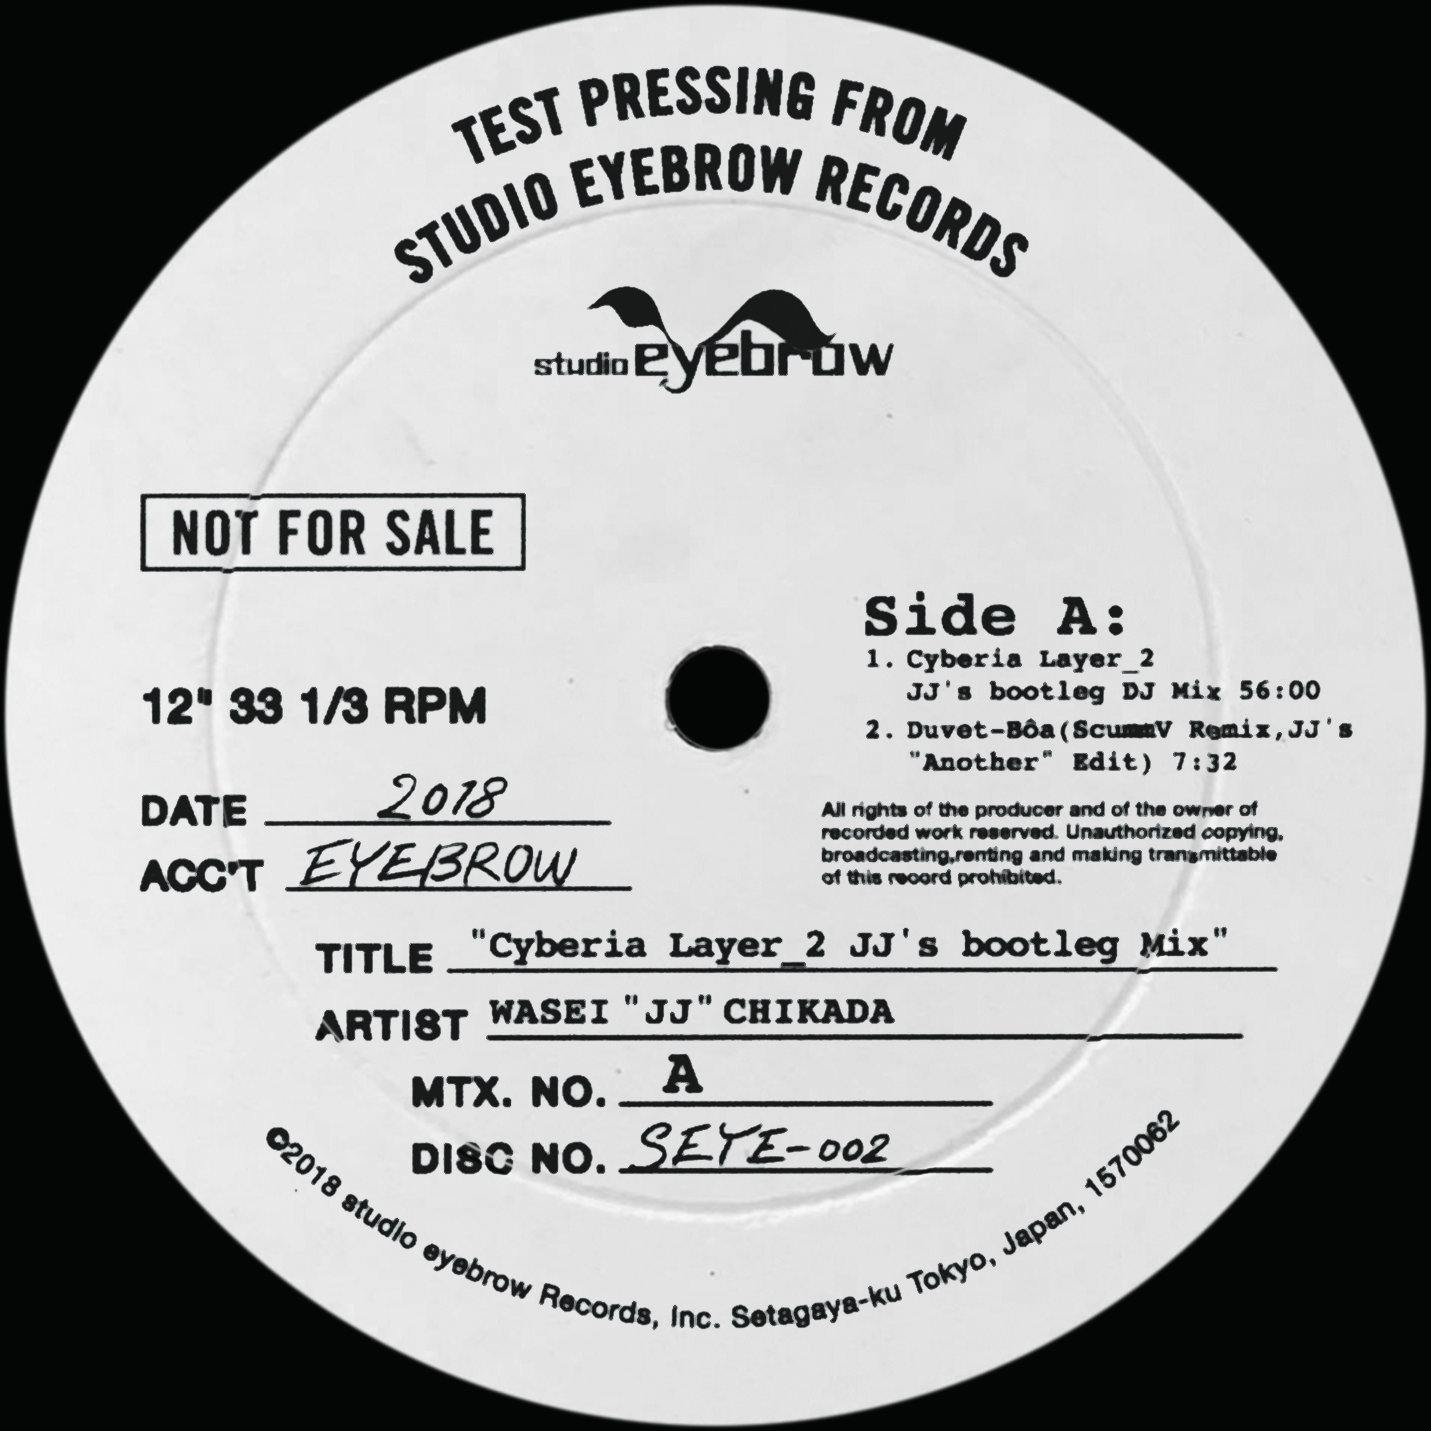 TEST PRESSING FROM
STUDIO EYEBROW RECORDS
studio eyebrow
NOT FOR SALE
12" 33 1/3 RPM
Side A:
1. Cyberia Layer_2
JJ's bootleg DJ Mix 56:00
2. Duvet-Bôa(ScummV Remix,JJ's
"Another" Edit) 7:32
DATE 2018
ACC'T EYEBROW
All rights of the producer and of the owner of
recorded work reserved. Unauthorized copying,
broadcasting,renting and making transmittable
of this record prohibited.
TITLE "Cyberia Layer_2 JJ's bootleg Mix"
ARTIST WASEI "JJ" CHIKADA
MTX. NO. A
DISC NO. SEYE-002
©2018 studio eyebrow Records, Inc. Setagaya-ku Tokyo, Japan, 1570062